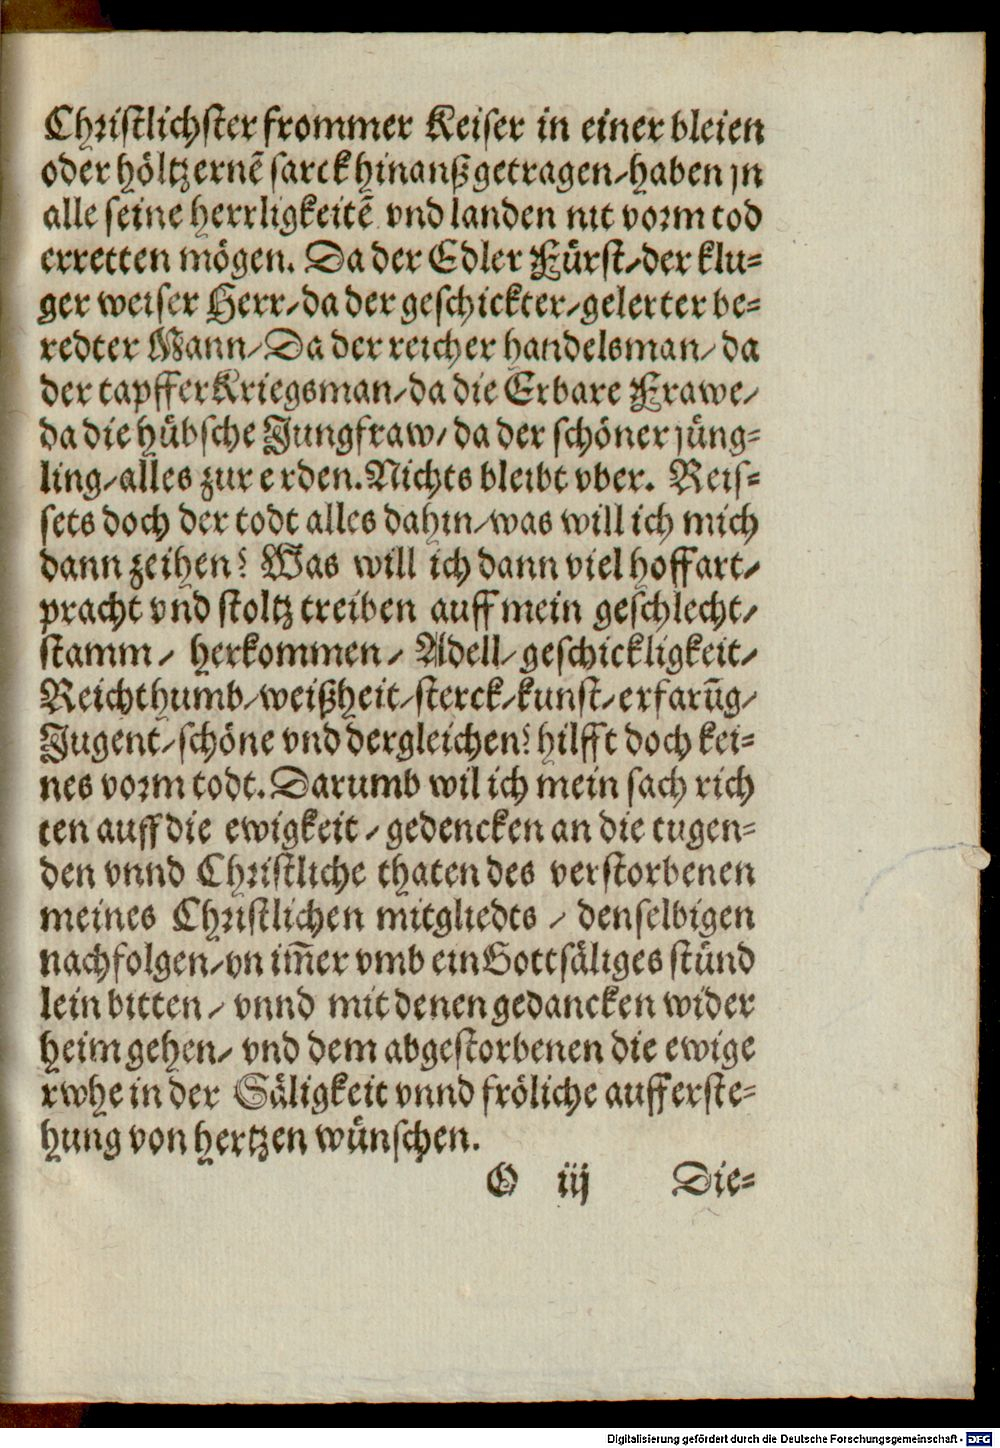 Christlichster frommer Keiser in einer bleien
oder höltzernẽ sarck hinanß getragen/ haben jn
alle seine herrligkeitẽ vnd landen nit vorm tod
erretten mögen. Da der Edler Fürst/ der klu⸗
ger weiser Herr/ da der geschickter/ gelerter be⸗
redter Mann/ Da der reicher handelsman/ da
der tapffer Kriegsman/ da die Erbare Frawe/
da die hübsche Jungfraw/ da der schöner jüng⸗
ling/ alles zur erden. Nichts bleibt vber. Reis⸗
sets doch der todt alles dahin/ was will ich mich
dann zeihen? Was will ich dann viel hoffart/
pracht vnd stoltz treiben auff mein geschlecht/
stamm/ herkommen/ Adell/ geschickligkeit/
Reichthumb/ weißheit/ sterck/ kunst/ erfarũg/
Jugent/ schöne vnd dergleichen? hilfft doch kei⸗
nes vorm todt. Darumb wil ich mein sach rich
ten auff die ewigkeit/ gedencken an die tugen⸗
den vnnd Christliche thaten des verstorbenen
meines Christlichen mitgliedts/ denselbigen
nachfolgen/ vn im̃er vmb ein Gottsäliges stünd
lein bitten/ vnnd mit denen gedancken wider
heim gehen/ vnd dem abgestorbenen die ewige
rwhe in der Säligkeit vnnd fröliche aufferste⸗
hung von hertzen wünschen.
G iij Die⸗
Digitalisierung gefördert durch die Deutsche Forschungsgemeinschaft - DFG